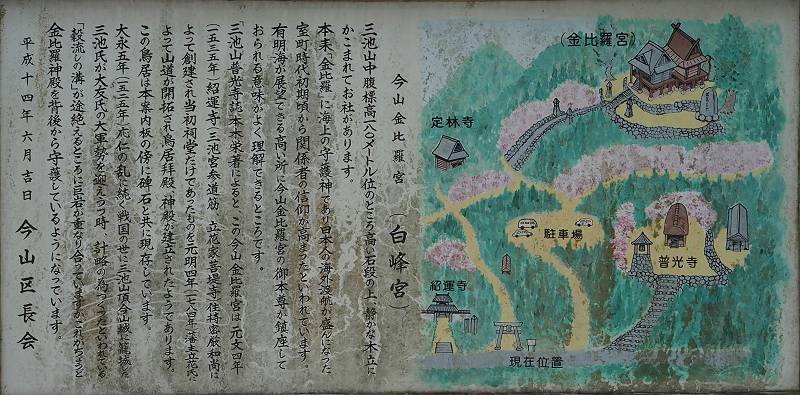 今山金比羅宮（白峰宮）
三池山中腹標高一八〇メートル位のところ高い石段の上、静かな木立に
かこまれてお社があります
本来「金比羅」は海上の守護神であり日本人の海外渡航が盛んになった
室町時代初期頃から関係者の信仰が高まったといわれています。
有明海が展望できる高い所に今山金比羅宮の御本尊が鎮座して
おられる意味がよく理解できるところです。
「三池山普光寺誌」本木栄著によると、この今山金比羅宮は元文四年
紹運寺（三池宮参道筋 立花家菩提寺）住持密厳和尚に
よって創建され当初祠堂だけであったものを元明四年藩主立花氏に
よって山道が開拓され鳥居拝殿、神殿が建立されたようであります。
この鳥居は本案内板の傍に碑石と共に現存しています。
大永五年（一五二五年）応仁の乱に続く戦国の世に三池山頂今山城に籠城した
三池氏が大友氏の大軍勢を迎えうつ時、計略の為つくったといわれている
「穀流しの溝」が途絶えるところに巨岩が重なり合っていますがこれがちょうど
金比羅神殿を背後から守護しているようになっています。
平成十四年六月吉日 今山区長会
（金比羅宮）
定林寺
駐車場
普光寺
紹運寺
現在位置